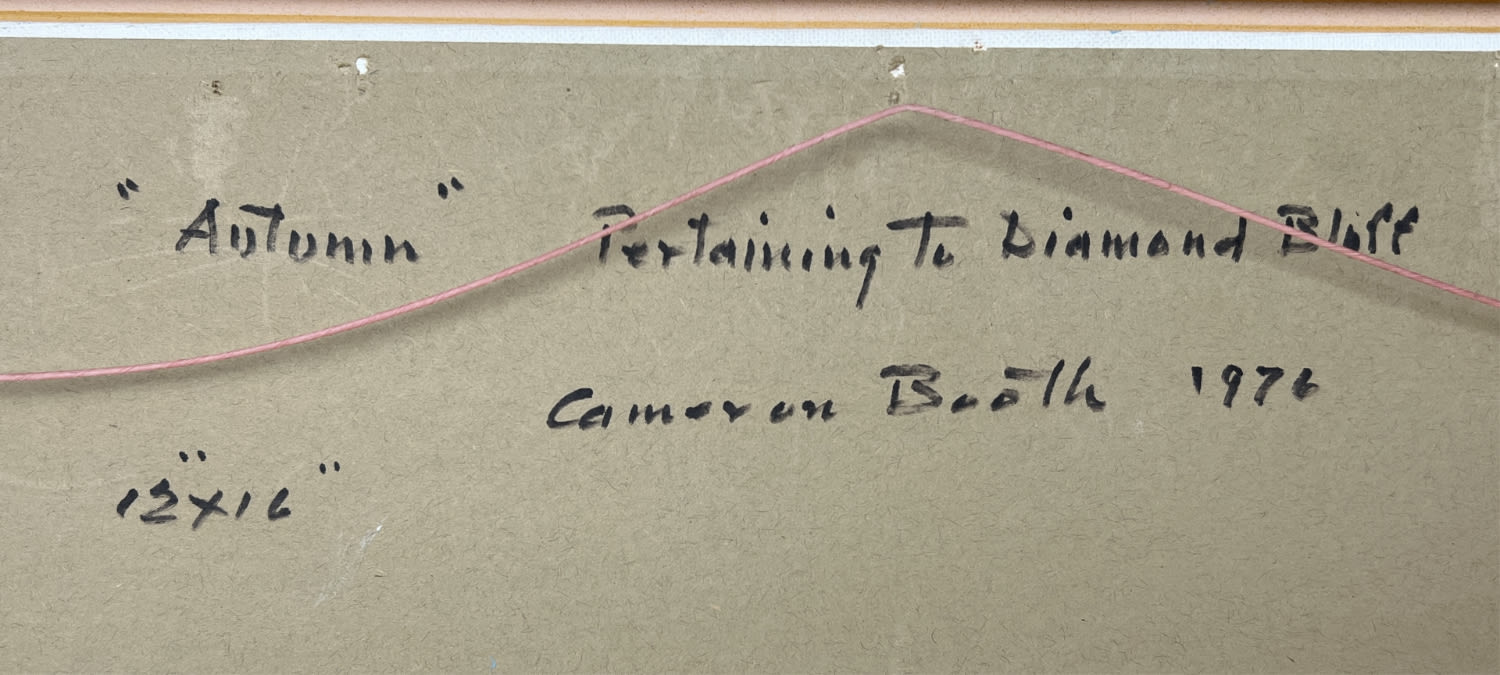 "Autumn" Pertaining To Diamond Bluff
Cameron Booth 1976
12"x16"